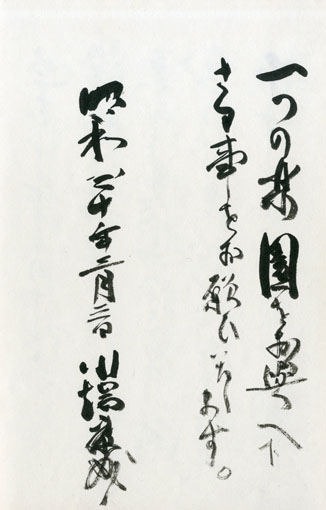 一つの楽園をお與へ下
さる事をお願ひいたします。
昭和二十年二月二日 川端康成